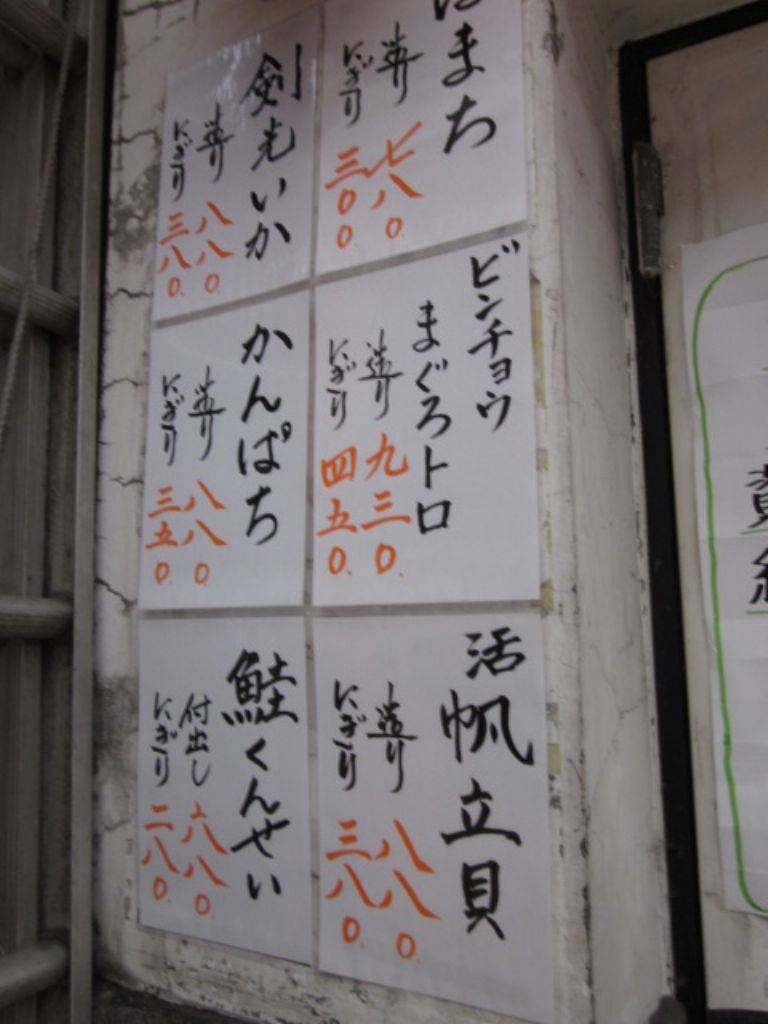 はまち
造り 七八〇.
にぎり 三〇〇
剣先いか
造り 八八〇.
にぎり 三八〇.
ビンチョウ
まぐろトロ
造り 九三〇.
にぎり 四五〇.
かんぱち
造り 八八〇.
にぎり 三五〇.
活帆立貝
造り 八八〇.
にぎり 三八〇.
鮭くんせい
付出し 六八〇.
にぎり 二八〇.